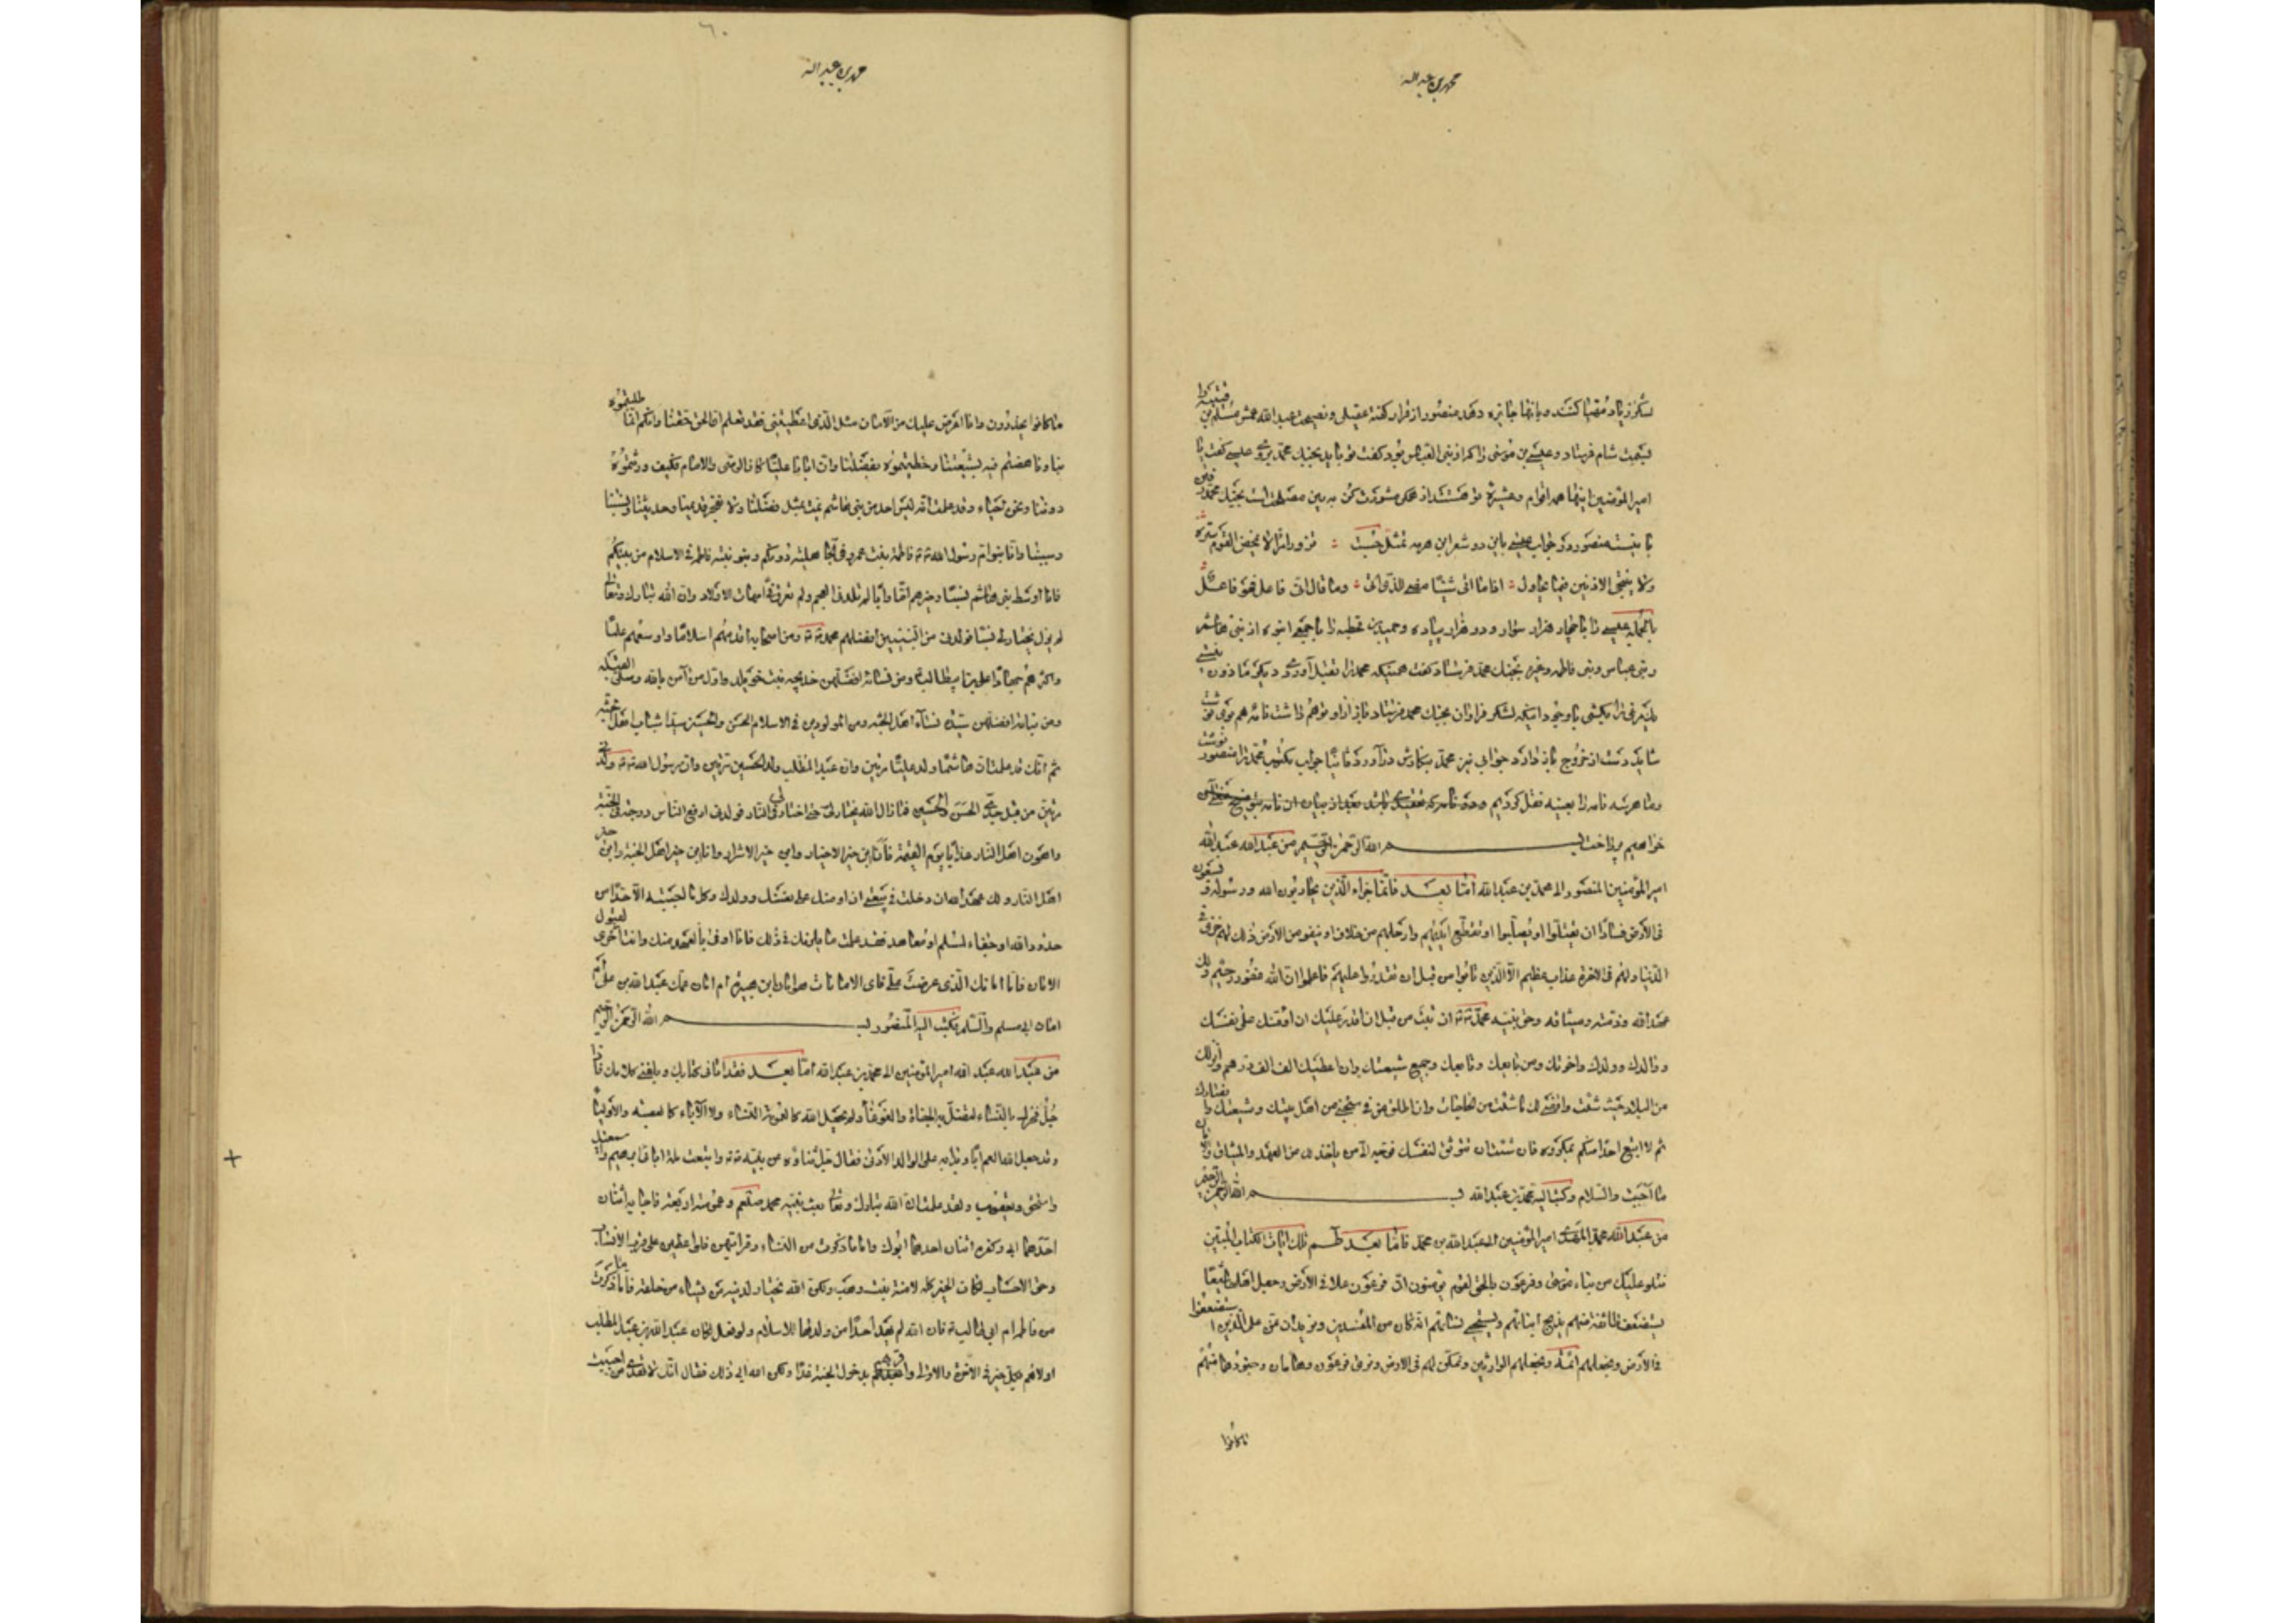 محمد بن عبدالله
لشکر زیاد مهیا کنند و بانها جایزه دهد منصور از قرار گفته عقیلی و نصیحت عبدالله عمش مسلم بن قتیبه را
بجهت شام فرستاد و عیسی بن موسی را که از بنی العباس بود گفت تو باید بجنگ محمد بروی عیسی گفت یا
امیر المؤمنین اینها همه اقوام و عشیره تو هستند از همه مشورت کن به بین مصلحت است بجنگ محمد رفتن
یا نیست منصور در جواب عیسی باین دو شعر ابن هرمه تمثل جست : نزور امرأ لا یمخض القوم سره
ولا ینتجی الادنین فیما یحاول : اذا ما اتی شیئا مضی للذی اتی : وما قال انی فاعل فهو فاعل
بالجمله عیسی را با چهار هزار سوار و دو هزار پیاده و حمید بن قحطبه را با جمعی انبوه از بنی هاشم
و بنی عباس و بنی فاطمه وغیره بجنگ محمد فرستاد گفت همینکه محمد را بقتل آوردی دیگر ماذون نیستی
شاید دست از خروج باز دارد جوابی نیز محمد بنگارش در آورد ثانیا جواب مکتوب محمد را منصور نوشت
وما هر سه نامه را بعینه نقل کردیم
خواهیم پرداخت بسم الله الرحمن الرحیم من عبدالله عبدالله
امیر المؤمنین المنصور الی محمد بن عبدالله اما بعد فانما جزاء الذین یحاربون الله ورسوله ویسعون
فی الارض فسادا ان یقتلوا او یصلبوا او تقطع ایدیهم وارجلهم من خلاف او ینفوا من الارض ذلک لهم خزی فی
الدنیا ولهم فی الاخرة عذاب عظیم الا الذین تابوا من قبل ان تقدروا علیهم فاعلموا ان الله غفور رحیم ولک
عهد الله وذمته ومیثاقه وحق نبیه محمد ان تبت من قبل ان اقدر علیک ان اؤمنک علی نفسک
وولدک واخوتک ومن بایعک وتابعک وجمیع شیعتک وان اعطیک الف الف درهم وانزلک
من البلاد حیث شئت واقضی لک ما شئت من الحاجات وان اطلق من فی سجنی من اهل بیتک وشیعتک وانصارک
ثم لا اتبع احدا منکم بمکروه فان شئت ان تتوثق لنفسک فوجه الی من یاخذ لک من العهد والمیثاق والامان
ما احببت والسلام وکتب الیه محمد بن عبدالله بسم الله الرحمن الرحیم
من عبدالله محمد المهدی امیر المؤمنین الی عبدالله بن محمد فاما بعد طسم تلک ایات الکتاب المبین
نتلو علیک من نباء موسی وفرعون بالحق لقوم یؤمنون ان فرعون علا فی الارض وجعل اهلها شیعا
یستضعف طائفة منهم یذبح ابنائهم ویستحیی نسائهم انه کان من المفسدین ونرید ان نمن علی الذین استضعفوا
فی الارض ونجعلهم ائمة ونجعلهم الوارثین ونمکن لهم فی الارض ونری فرعون وهامان وجنودهما منهم
ما کانوا
٦٠
محمد بن عبدالله
ما کانوا یحذرون وانا اعرض علیک من الامان مثل الذی اعطیتنی فقد تعلم ان الحق حقنا وانکم انما طلبتموه
بنا ونهضتم فیه بشیعتنا وخطبتموه بفضلنا وان ابانا علیا کان الوصی والامام فکیف ورثتموه
دوننا ونحن احیاء وقد علمت انه لیس احد من بنی هاشم یمت بمثل فضلنا ولا یفخر بمثل قدیمنا وحدیثنا ونسبنا
وسببنا وانا بنو ام رسول الله فاطمة بنت عمرو فی الجاهلیة دونکم وبنو بنته فاطمة فی الاسلام من بینکم
فانا اوسط بنی هاشم نسبا وخیرهم اما وابا لم تلدنی العجم ولم تعرق فی امهات الاولاد وان الله تبارک وتعالی
لم یزل یختار لنا فولدنی من النبیین افضلهم محمد ومن اصحابه اقدمهم اسلاما واوسعهم علما
واکثرهم جهادا علی بن ابیطالب ومن نسائه افضلهن خدیجه بنت خویلد اول من آمن بالله وصلی القبله
ومن بناته افضلهن سیدة نساء اهل الجنه ومن المولودین فی الاسلام الحسن والحسین سیدا شباب اهل الجنه
ثم انک قد علمت ان هاشما ولد علیا مرتین وان عبدالمطلب ولد الحسین مرتین وان رسول الله ولدنی
مرتین من قبل جدی الحسن والحسین فما زال الله یختار لی حتی اختار لی فی النار فولدنی ارفع الناس درجة فی الجنه
واهون اهل النار عذابا یوم القیمة فانا ابن خیر الاخیار وابن خیر الاشرار وانا ابن خیر اهل الجنة وابن خیر
اهل النار ولک عهد الله ان دخلت فی بیعتی ان اومنک علی نفسک وولدک وکل ما اصبته الا حدا من
حدود الله او حقا لمسلم او معاهد فقد علمت ما یلزمک فی ذلک فانا اوفی بالعهد منک وانت احری لقبول
الامان فاما امانک الذی عرضت علی فای الامانات هو امان ابن هبیره ام امان عمک عبدالله بن علی ام
امان ابی مسلم والسلم فکتب الیه المنصور بسم الله الرحمن الرحیم
من عبدالله عبدالله امیر المؤمنین الی محمد بن عبدالله اما بعد فقد اتانی کتابک وبلغنی کلامک فاذا
جل فخرک بالنساء لتضل به الجفاة والغوغاء ولم یجعل الله النساء کالعمومة ولا الآباء کالعصبة والاولیاء
وقد جعل الله العم ابا وبدأ به علی الوالد الادنی فقال جل ثناؤه عن نبیه واتبعت ملة ابائی ابرهیم واسمعیل
واسحق ویعقوب ولقد علمت ان الله تبارک وتعالی بعث نبیه محمد صلعم وعمومته اربعة فاجابه اثنان
احدهما ابی وکفر به اثنان احدهما ابوک واما ما ذکرت من النساء وقراباتهن فلو اعطین علی قرب الانساب
وحق الاحساب لکان الخیر کله لامنة بنت وهب ولکن الله یختار لدینه من یشاء من خلقه فاما ما ذکرت
من فاطمه ام ابی طالب فان الله لم یهد احدا من ولدها للاسلام ولو فعل لکان عبدالله بن عبدالمطلب
اولاهم بکل خیر فی الاخرة والاولی واسعدهم بدخول الجنة غدا ولکن الله ابی ذلک فقال انک لا تهدی من احببت